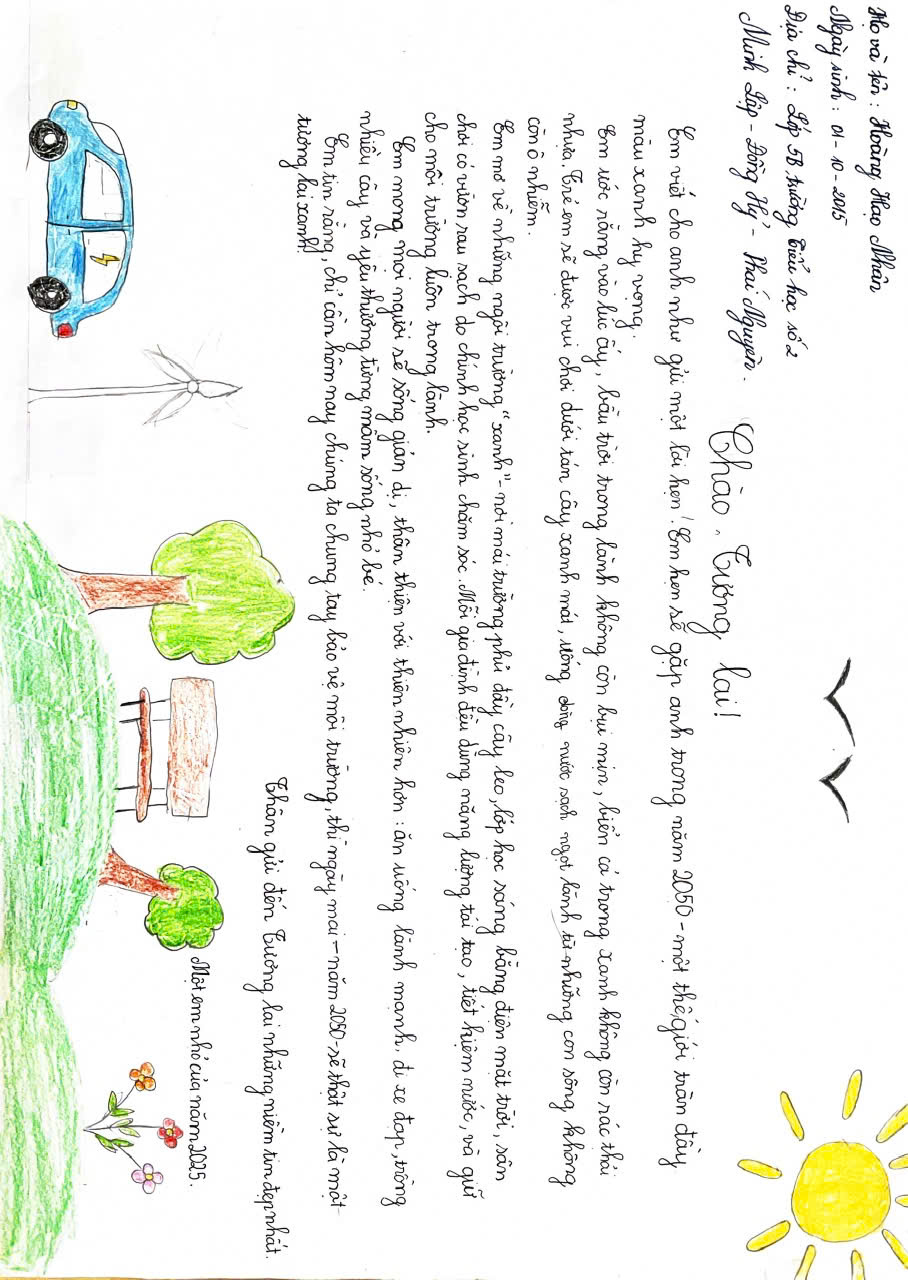 Họ và tên : Hoàng Hạo Nhân
Ngày sinh : 01 - 10 - 2015
Địa chỉ : Lớp 5B trường Tiểu học số 2
Minh Lập - Đồng Hỷ - Thái Nguyên.
Chào, Tương lai!
Em viết cho anh như gửi một lời hẹn! Em hẹn sẽ gặp anh trong năm 2050 - một thế giới tràn đầy
màu xanh hy vọng.
Em ước rằng vào lúc ấy, bầu trời trong lành không còn bụi mịn, biển cả trong xanh không còn rác thải
nhựa. Trẻ em sẽ được vui chơi dưới tán cây xanh mát, uống dòng nước sạch ngọt lành từ những con sông không
còn ô nhiễm.
Em mơ về những ngôi trường "xanh" - nơi mái trường phủ đầy cây leo, lớp học sáng bằng điện mặt trời, sân
chơi có vườn rau sạch do chính học sinh chăm sóc. Mỗi gia đình đều dụng năng lượng tái tạo, tiết kiệm nước, và giữ
cho môi trường luôn trong lành.
Em mong mọi người sẽ sống giản dị, thân thiện với thiên nhiên hơn : ăn uống lành mạnh, đi xe đạp, trồng
nhiều cây và yêu thương từng mầm sống nhỏ bé.
Em tin rằng, chỉ cần hôm nay chúng ta chung tay bảo vệ môi trường, thì ngày mai - năm 2050 - sẽ thật sự là một
tương lai xanh!
Thân gửi đến Tương lai những niềm tin đẹp nhất.
Một em nhỏ của năm 2025.